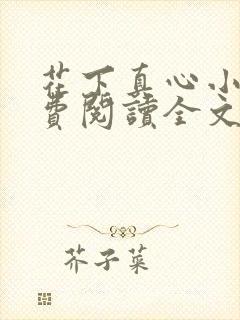 茬下真心小
費閱讀全文
芥子菜